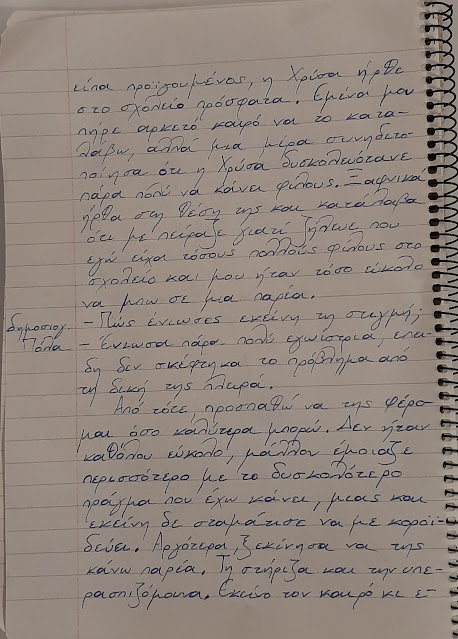 είπα προηγουμένως, η Χρύσα ήρθε
στο σχολείο πρόσφατα. Εμένα μου
πήρε αρκετό καιρό να το κατα-
λάβω, αλλά μια μέρα συνηδειτο-
ποίησα ότι η Χρύσα δυσκολευότανε
πάρα πολύ να κάνει φίλους. Ξαφνικά
ήρθα στη θέση της και κατάλαβα
ότι με πείραζε γιατί ζήλευε που
εγώ είχα τόσους πολλούς φίλους στο
σχολείο και μου ήταν τόσο εύκολο
να μπω σε μια παρέα.
δημοσιογ. - Πώς ένιωσες εκείνη τη στιγμή;
Πόλα - Ένιωσα πάρα πολύ εγωίστρια, επει-
δη δεν σκέφτηκα το πρόβλημα από
τη δική της πλευρά.
Από τότε, προσπαθώ να της φέρο-
μαι όσο καλύτερα μπορώ. Δεν ήταν
καθόλου εύκολο, μάλλον έμοιαζε
περισσότερο με το δυσκολότερο
πράγμα που έχω κάνει, μιας και
εκείνη δε σταμάτησε να με κοροϊ-
δεύει. Αργότερα, ξεκίνησα να της
κάνω παρέα. Τη στήριζα και την υπε-
ρασπιζόμουνα. Εκείνο τον καιρό κι ε-